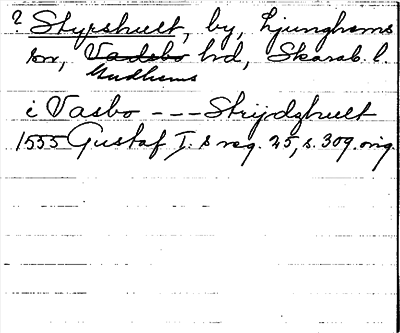 ? Styrshult, by, Ljunghems
sn, Vadsbo hd, Skarab. l.
Gudhems
i Vasbo --- Strijdzhult
1555 Gustaf I. s reg. 25, s. 309. orig.